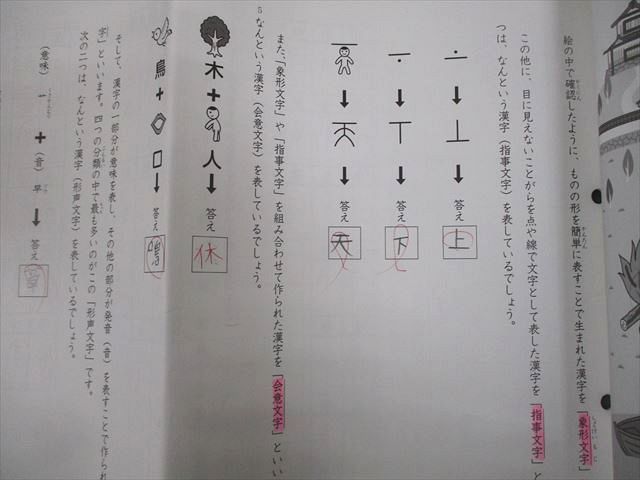 絵の中で確認したように、ものの形を簡単に表すことで生まれた漢字を「象形文字」
この他に、目に見えないことがらを点や線で文字として表した漢字を「指事文字」と
つは、なんという漢字（指事文字）を表しているでしょう。
答え 上
答え 下
答え 天
また、「象形文字」や「指事文字」を組み合わせて作られた漢字を「会意文字」といい
なんという漢字（会意文字）を表しているでしょう。
木＋人 答え 休
鳥＋口 答え 鳴
そして、漢字の一部分が意味を表し、その他の部分が発音（音）を表すことで作られ
字」といいます。四つの分類の中で最も多いのがこの「形声文字」です。
次の二つは、なんという漢字（形声文字）を表しているでしょう。
（意味）＋（音）早 答え